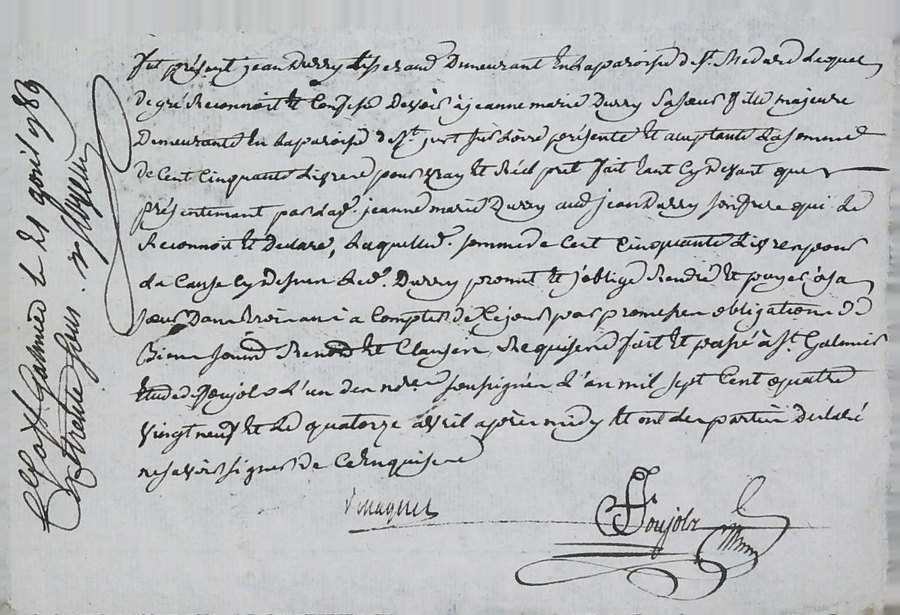 fut présent jean Durry tisserand Demeurant En la paroisse de St. Medard lequel
de gré Reconnoit et Confesse Devoir à jeanne marie Durry sa sœur fille majeure
Demeurante En la paroisse de St. just sur Loire présente et acceptante la somme
de Cent Cinquante Livres pour vray et Réel pret fait tant Cy Devant que
présentimant par lad. jeanne marie Durry aud jean Durry son frere qui Le
Reconnoit et Declare, Laquelle d. somme de Cent Cinquante Livres pour
La Cause Cy dessus Led. Durry promet et s'oblige Rendre et payer à sa
sœur Dans trois an à Compter de Ce jour par promesses obligations de
Biens soumis Renon et Clauses, Requises fait et passé à St. Galmier
Etude Poujol L'un des nores soussignés L'an mil sept Cent quatre
vingt neuf et Le quatorze avril après midy Et ont les parties Declaré
ne savoir signer de Ce Enquises
Poujol
St Galmier Le 21 avril 1789
trente sous